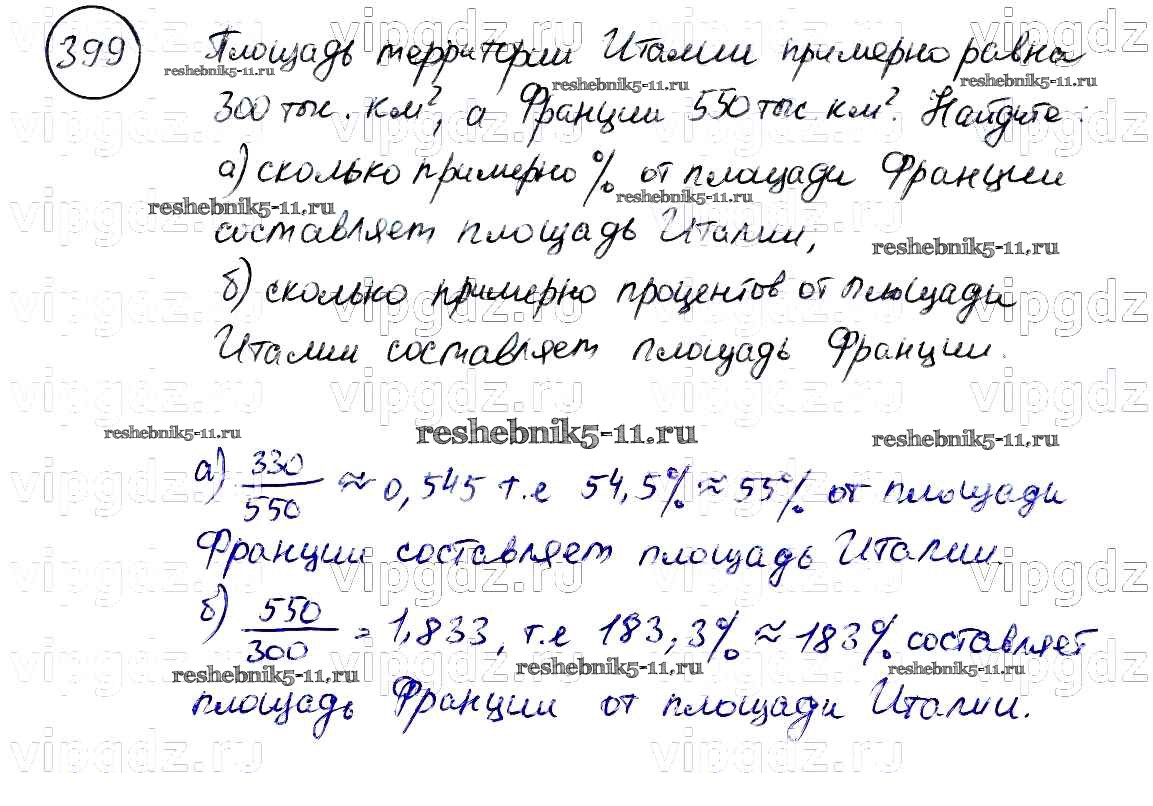 399 Площадь территории Италии примерно равна
300 тыс. км², а Франции 550 тыс км². Найдите:
а) сколько примерно % от площади Франции
составляет площадь Италии,
б) сколько примерно процентов от площади
Италии составляет площадь Франции.
reshebnik5-11.ru
а) 330/550 ≈ 0,545 т.е 54,5% ≈ 55% от площади
Франции составляет площадь Италии.
б) 550/300 = 1,833, т.е 183,3% ≈ 183% составляет
площадь Франции от площади Италии.
vipgdz.ru